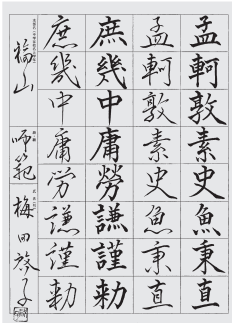 孟軻敦素史魚秉直
孟軻敦素史魚秉直
庶幾中庸勞謙謹勅
庶幾中庸労謙謹勅
福山 師範 梅田啓子